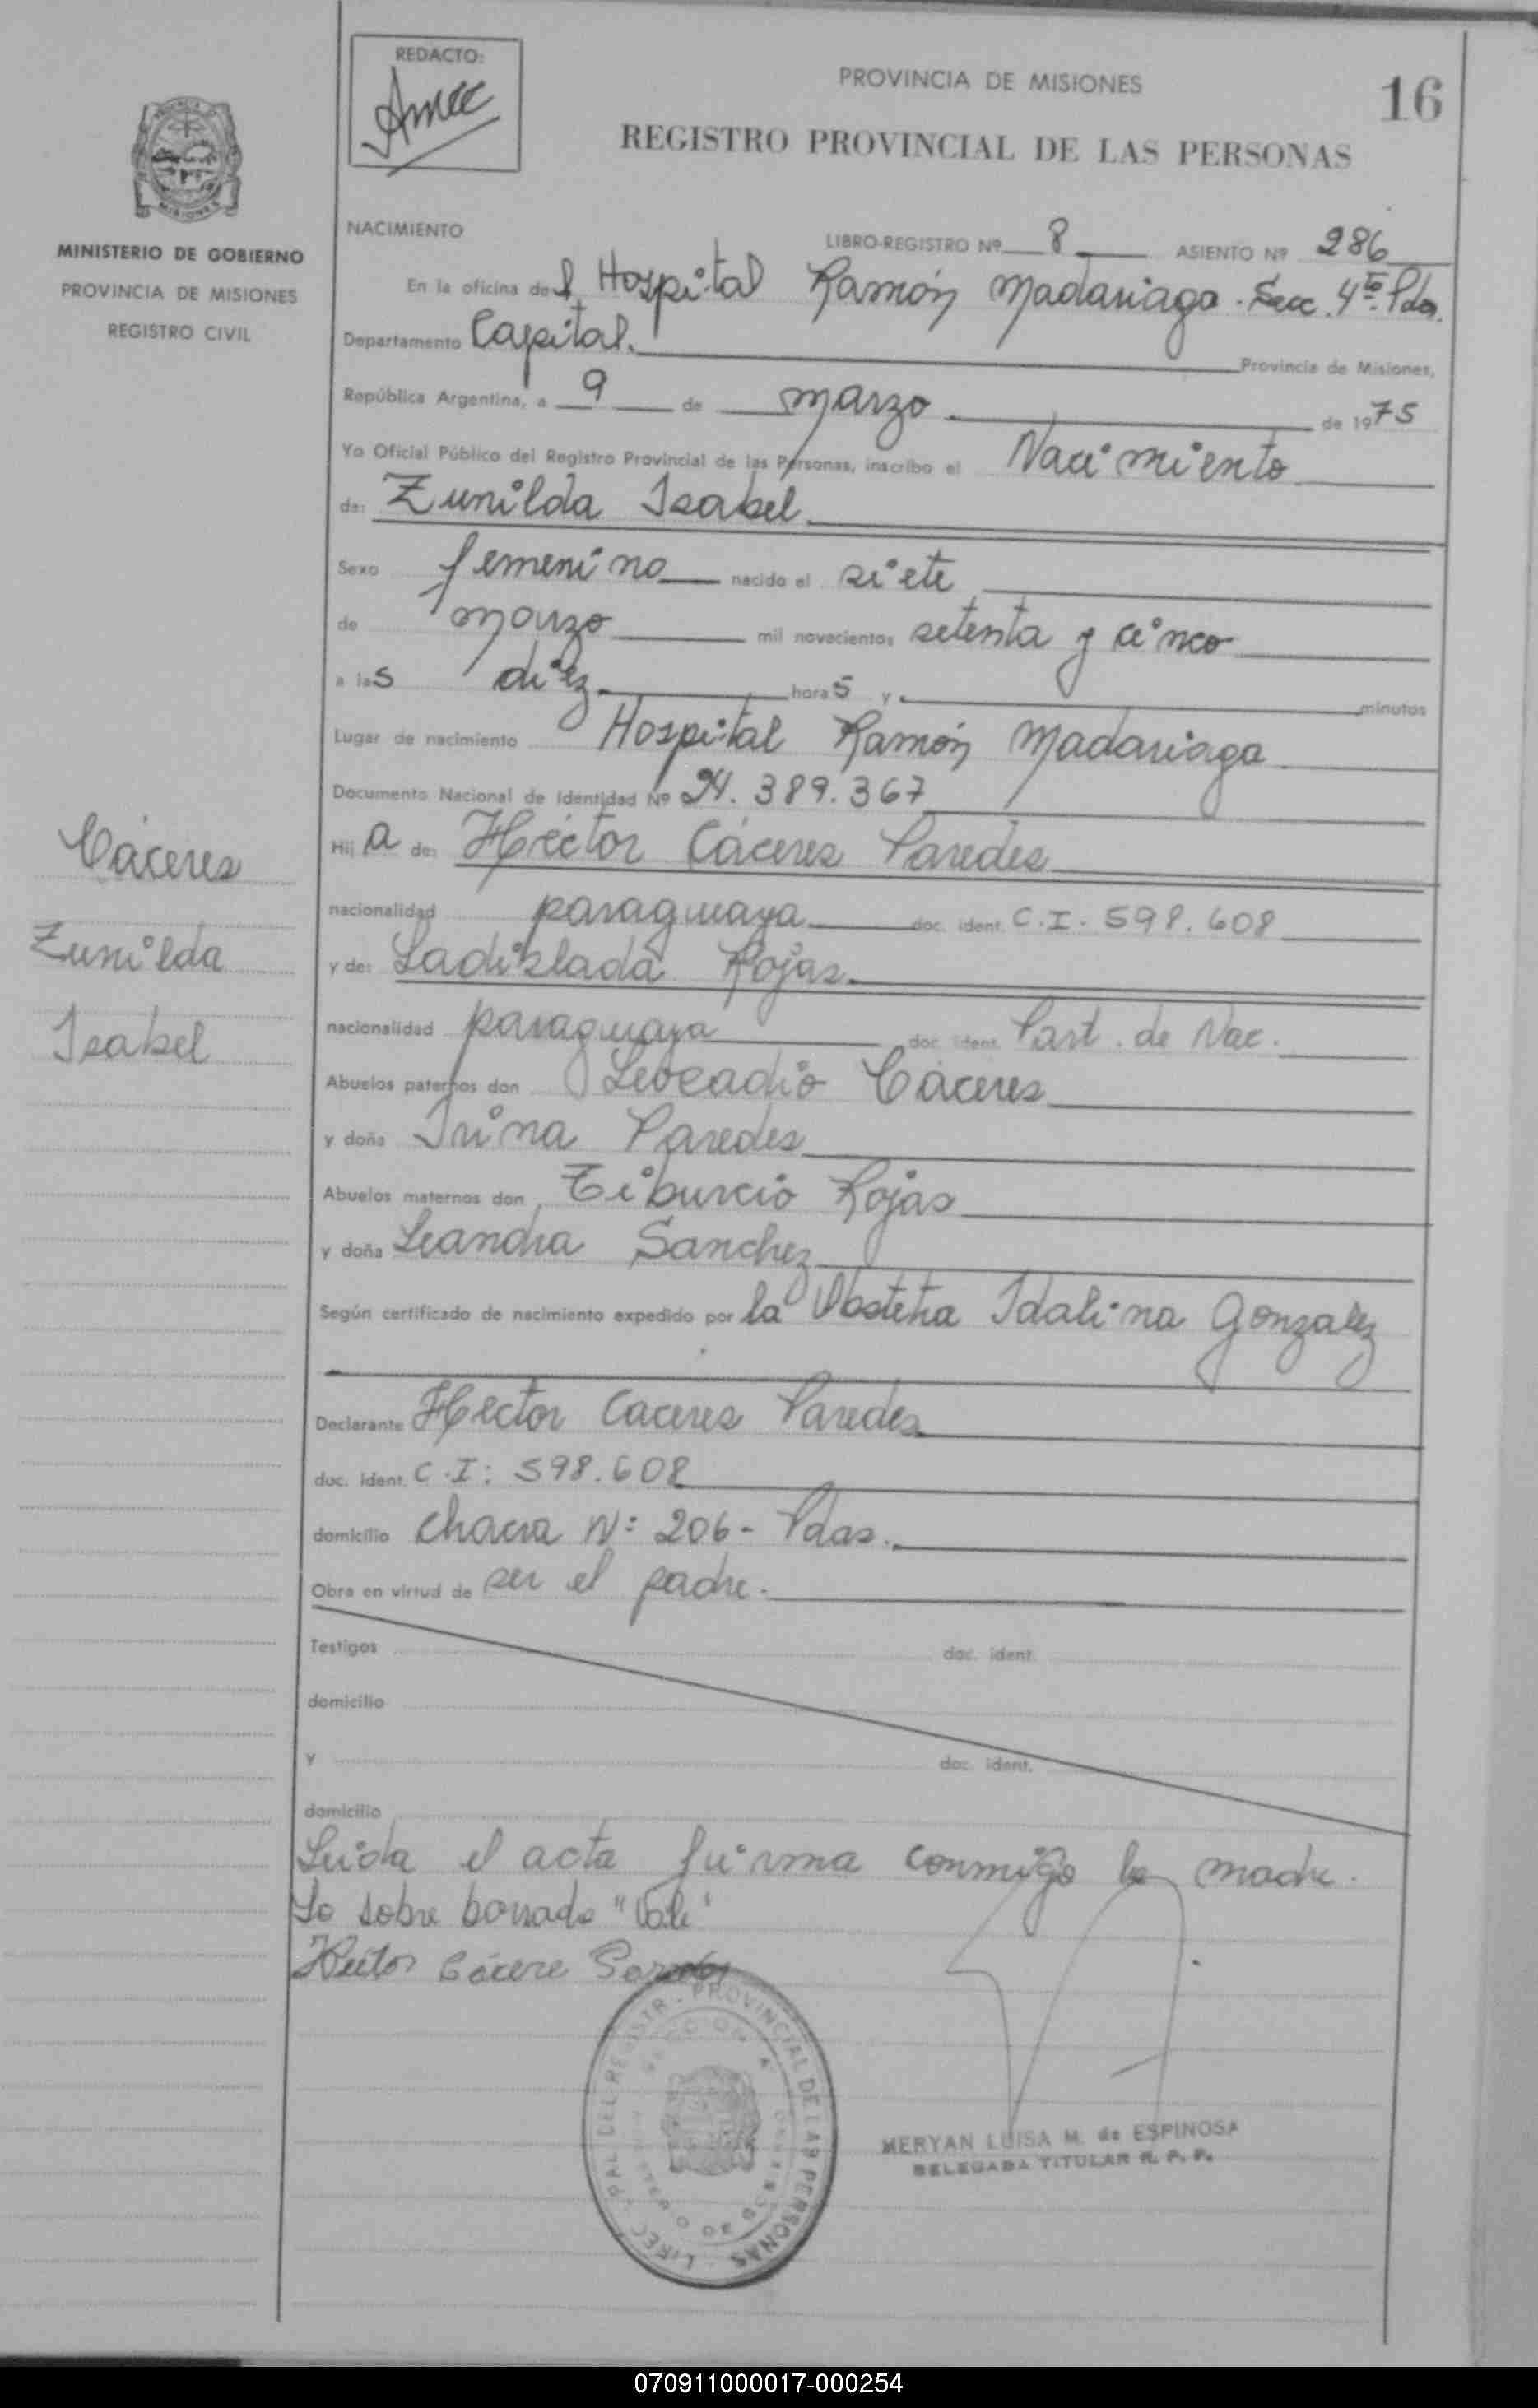 REDACTO:
PROVINCIA DE MISIONES
16
REGISTRO PROVINCIAL DE LAS PERSONAS
MISIONES
MINISTERIO DE GOBIERNO
PROVINCIA DE MISIONES
REGISTRO CIVIL
NACIMIENTO
LIBRO-REGISTRO Nº 8 ASIENTO Nº 286
En la oficina del Hospital Ramón Madariaga - Secc. 4ta Pdas.
Departamento Capital. Provincia de Misiones,
República Argentina, a 9 de marzo de 1975
Yo Oficial Público del Registro Provincial de las Personas, inscribo el Nacimiento
de: Zunilda Isabel
Sexo femenino nacido el siete
de marzo mil novecientos setenta y cinco
a las diez horas y minutos
Lugar de nacimiento Hospital Ramón Madariaga
Documento Nacional de Identidad Nº 24.389.367
Hija de: Héctor Cáceres Paredes
nacionalidad paraguaya doc. ident. C.I. 598.608
y de: Ladislada Rojas
nacionalidad paraguaya doc. ident. Part. de Nac.
Abuelos paternos don Leocadio Cáceres
y doña Trina Paredes
Abuelos maternos don Tiburcio Rojas
y doña Leandra Sanchez
Según certificado de nacimiento expedido por la Obstetra Idalina Gonzalez
Declarante Héctor Caceres Paredes
doc. ident. C.I: 598.608
domicilio Chacra Nº: 206 - Pdas.
Obra en virtud de ser el padre.
Testigos doc. ident.
domicilio
y doc. ident.
domicilio
Leida el acta firma conmigo la madre.
Lo sobre borrado "Vale"
Héctor Cácere Paredes
Cáceres
Zunilda
Isabel
MERYAN LUISA M. de ESPINOSA
DELEGADA TITULAR R. P. P.
070911000017-000254